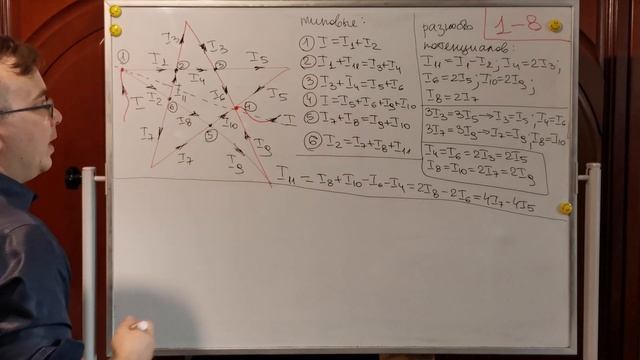 типовые:
① I = I₁+I₂
② I₁+I₁₁=I₃+I₄
③ I₃+I₄=I₅+I₆
④ I=I₅+I₆+I₉+I₁₀
⑤ I₇+I₈=I₉+I₁₀
⑥ I₂=I₇+I₈+I₁₁
потенциалов:
I₁₁=I₁-I₂; I₄=2I₃;
I₆=2I₅; I₁₀=2I₉;
I₈=2I₇
3I₃=3I₅→I₃=I₅; I₄=I₆
3I₇=3I₉→I₇=I₉; I₈=I₁₀
I₄=I₆=2I₃=2I₅
I₈=I₁₀=2I₇=2I₉
1-8
I₁₁ = I₈+I₁₀-I₆-I₄=2I₈-2I₆=4I₇-4I₅
I₃
I₃
①
I₁
②
I₄
③
I₅
I
I₂
I₁₁
I₆
④
I₅
⑥
I₈
I₁₀
I
I₇
⑤
I₉
I₇
I₉